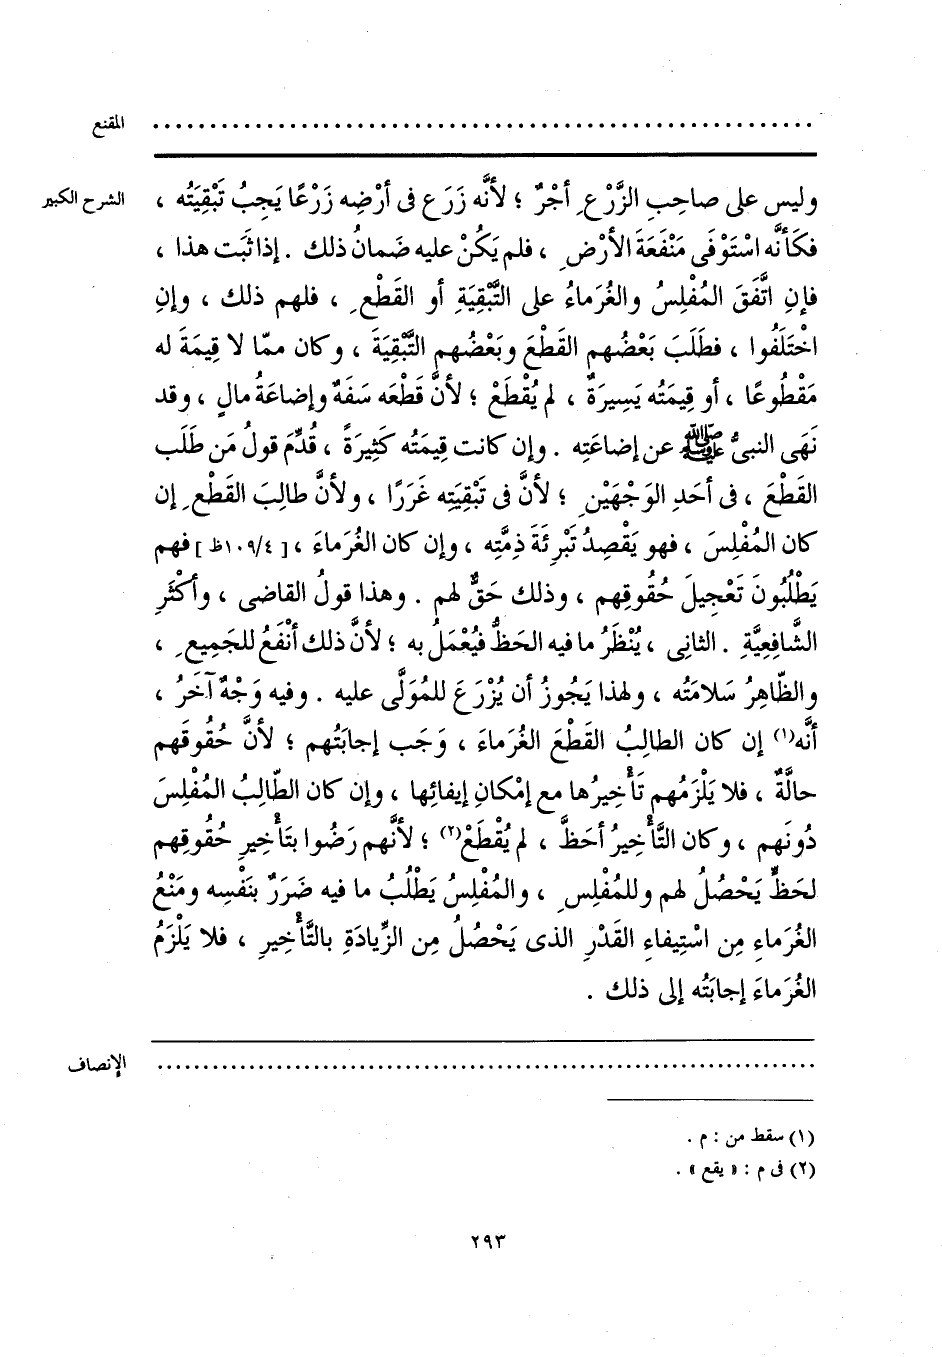 المقنع ............................................................
الشرح الكبير
وليس على صاحِبِ الزَّرْعِ أجْرٌ ؛ لأنَّه زَرَع فى أرْضِه زَرْعًا يَجِبُ تَبْقِيَتُه ،
فكَأنَّه اسْتَوْفَى مَنْفَعَةَ الأرْضِ ، فلم يَكُنْ عليه ضَمانُ ذلك . إذا ثَبَت هذا ،
فإنِ اتَّفَقَ المُفْلِسُ والغُرَماءُ على التَّبْقِيَةِ أو القَطْعِ ، فلهم ذلك ، وإنِ
اخْتَلَفُوا ، فطَلَبَ بَعْضُهم القَطْعَ وبَعْضُهم التَّبْقِيَةَ ، وكان ممّا لا قِيمَةَ له
مَقْطُوعًا ، أو قِيمَتُه يَسِيرَةٌ ، لم يُقْطَعْ ؛ لأنَّ قَطْعَه سَفَهٌ وإضاعَةُ مالٍ ، وقد
نَهَى النبىُّ ﷺ عن إضاعَتِه . وإن كانت قِيمَتُه كَثِيرَةً ، قُدِّمَ قولُ مَن طَلَب
القَطْعَ ، فى أحَدِ الوَجْهَيْنِ ؛ لأنَّ فى تَبْقِيَتِه غَرَرًا ، ولأنَّ طالِبَ القَطْعِ إن
كان المُفْلِسَ ، فهو يَقْصِدُ تَبْرِئَةَ ذِمَّتِه ، وإن كان الغُرَماءَ ، [ ١٠٩/٤ظ ] فهم
يَطْلُبُونَ تَعْجِيلَ حُقُوقِهم ، وذلك حَقٌّ لهم . وهذا قولُ القاضى ، وأكْثَرِ
الشَّافِعِيَّةِ . الثانِى ، يُنْظَرُ ما فيه الحَظُّ فيُعْمَلُ به ؛ لأنَّ ذلك أنْفَعُ للجَمِيعِ ،
والظّاهِرُ سَلامَتُه ، ولهذا يَجُوزُ أن يُزْرَعَ للمُوَلَّى عليه . وفيه وَجْهٌ آخَرُ ،
أنَّه(١) إن كان الطالِبُ القَطْعَ الغُرَماءَ ، وَجَب إجابَتُهم ؛ لأنَّ حُقُوقَهم
حالَّةٌ ، فلا يَلْزَمُهم تَأْخِيرُها مع إمْكانِ إيفائِها ، وإن كان الطّالِبُ المُفْلِسَ
دُونَهم ، وكان التَّأْخِيرُ أحَظَّ ، لم يُقْطَعْ(٢) ؛ لأنَّهم رَضُوا بتَأْخِيرِ حُقُوقِهم
لحَظٍّ يَحْصُلُ لهم وللمُفْلِسِ ، والمُفْلِسُ يَطْلُبُ ما فيه ضَرَرٌ بنَفْسِه ومَنْعُ
الغُرَماءِ مِن اسْتِيفاءِ القَدْرِ الذى يَحْصُلُ مِن الزِّيادَةِ بالتَّأْخِيرِ ، فلا يَلْزَمُ
الغُرَماءَ إجابَتُه إلى ذلك .
الإنصاف ............................................................
(١) سقط من : م .
(٢) فى م : « يقع » .
٢٩٣